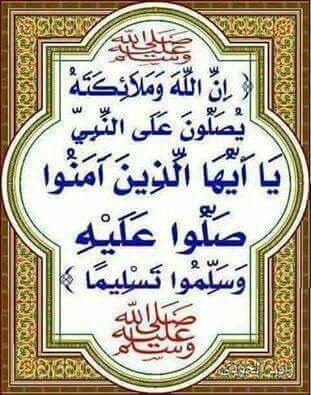 صلى الله عليه وسلم
﴿ إِنَّ اللَّهَ وَمَلَائِكَتَهُ
يُصَلُّونَ عَلَى النَّبِيِّ
يَا أَيُّهَا الَّذِينَ آمَنُوا
صَلُّوا عَلَيْهِ
وَسَلِّمُوا تَسْلِيمًا ﴾
صلى الله عليه وسلم